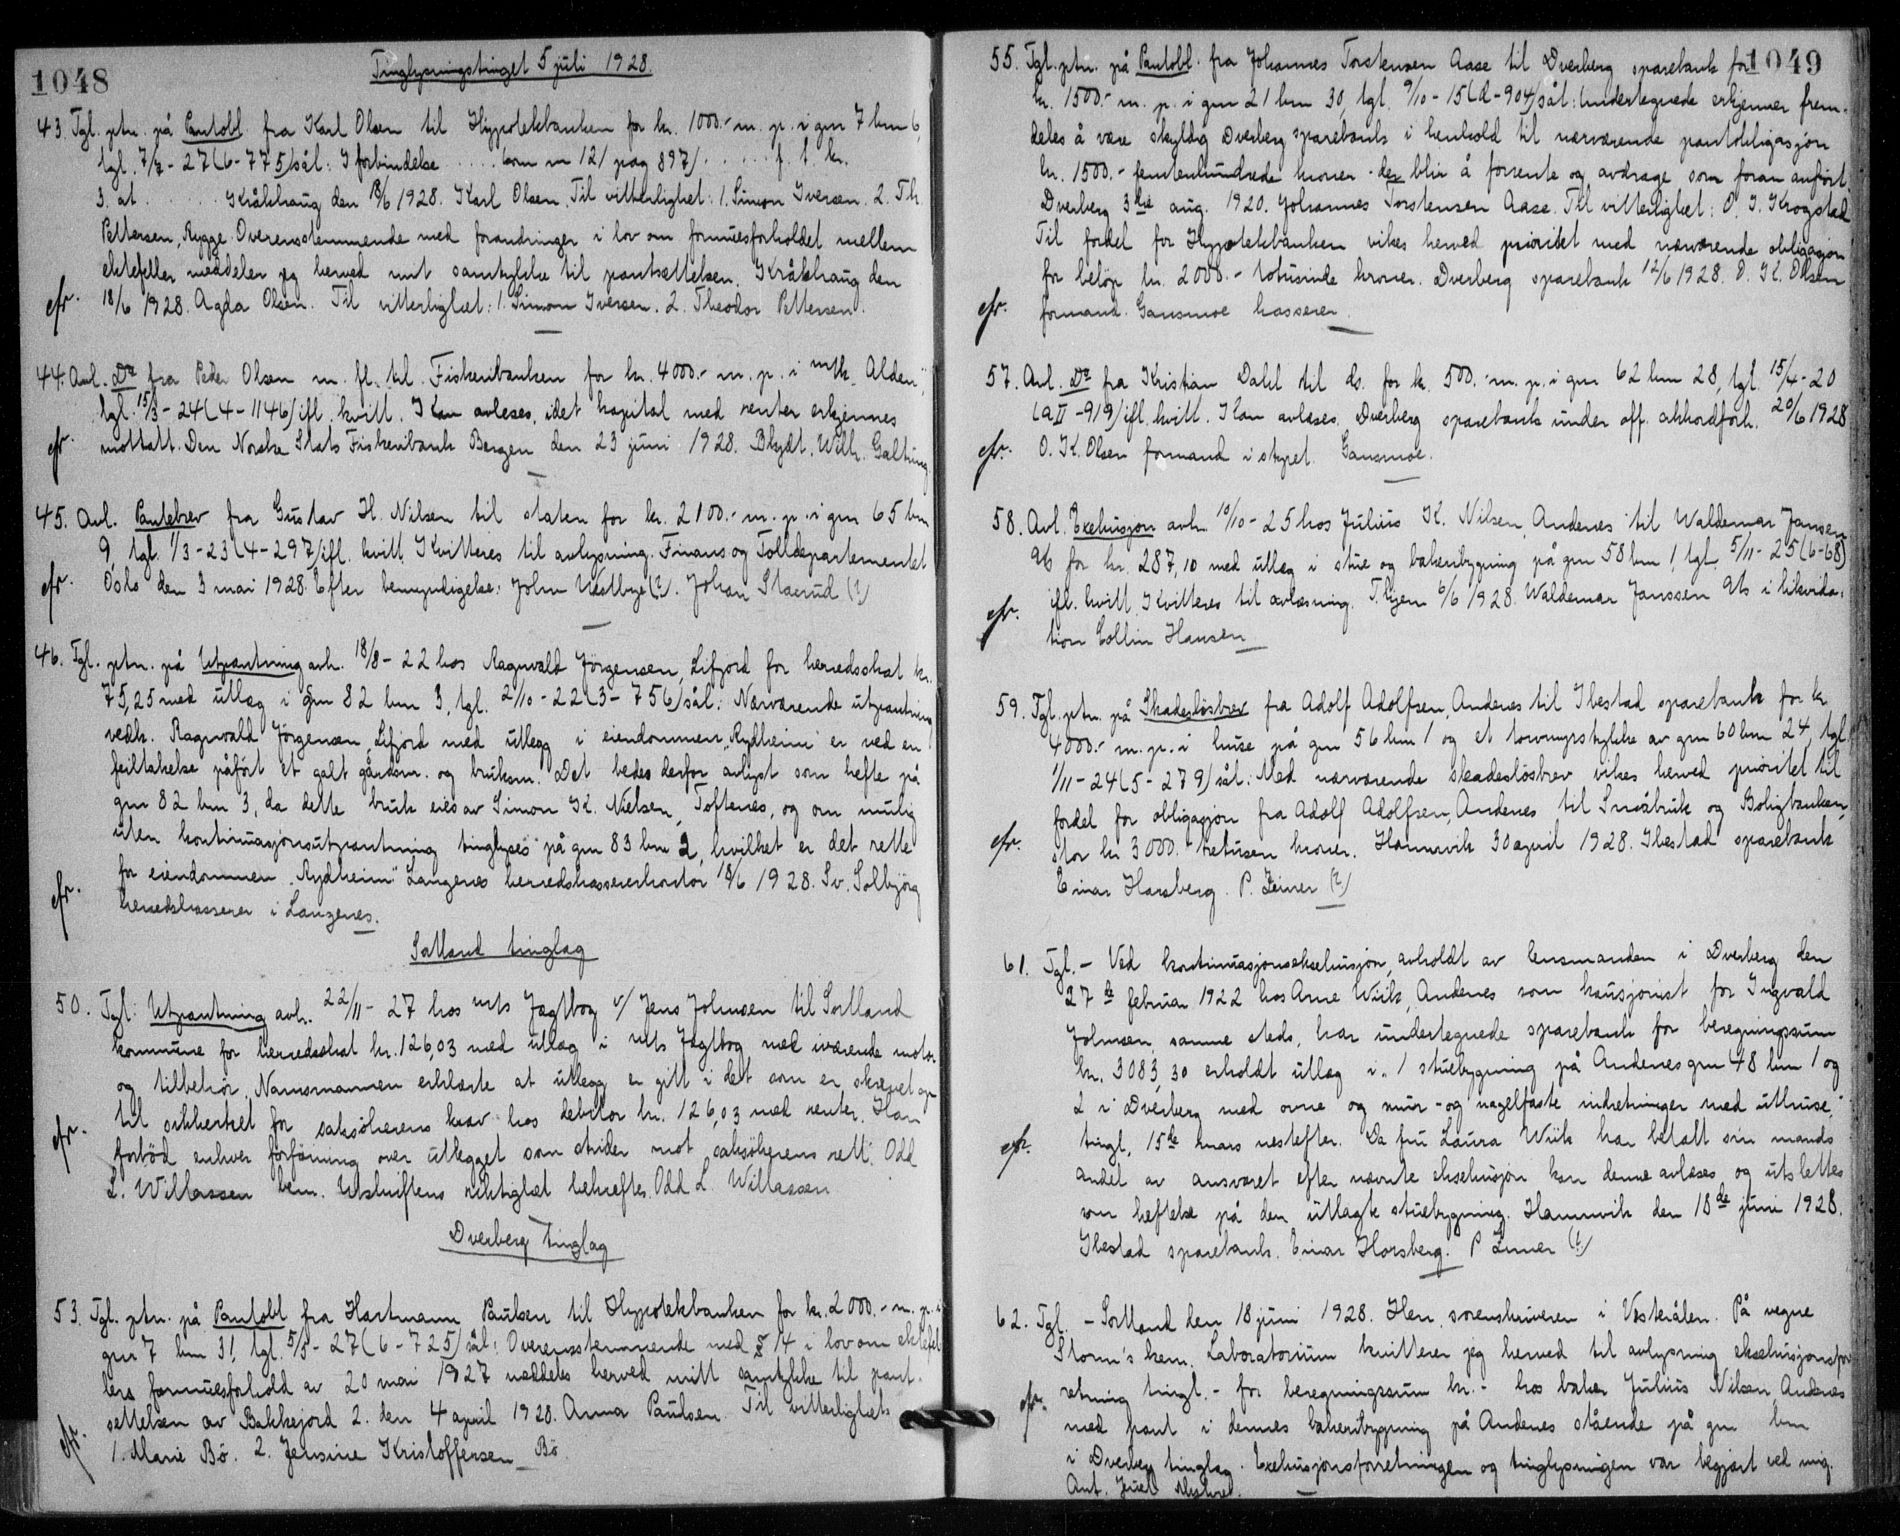 1048
Tinglysningstinget 5 juli 1928
43. Tgl. ptn. på Pantobl fra Karl Olsen til Hypotekbanken for kr. 1000.- m. p. i gnr 7 bnr 6,
tgl. 7/7-27 (6-775) sål: I forbindelse ..... (som nr 12/ pag 897) ...... f. f. kr.
3. at ..... Kråkhaug den 18/6 1928. Karl Olsen. Til vitterlighet: 1. Simon Iversen. 2. Th.
Pettersen, Rygge. Overensstemmende med forandringer i lov om formuesforholdet mellem
ektefeller meddeler jeg herved mit samtykke til pantsettelsen. Kråkhaug den
cfr. 18/6 1928. Agda Olsen. Til vitterlighet: 1. Simon Iversen. 2. Theodor Pettersen.
44. Avl. Do fra Peder Olsen m. fl. til Fiskeribanken for kr. 4000.- m. p. i m/k „Alden"
tgl. 15/3-24 (4-1146) ifl. kvitt. Kan avleses, idet kapital med renter erkjennes
cfr. mottatt. Den Norske Stats Fiskeribank Bergen den 23 juni 1928. Blydt. Wilh. Galtung.
45. Avl. Pantebrev fra Gustav H. Nilsen til staten for kr. 2100.- m. p. i gnr 65 bnr
9, tgl. 1/3-23 (4-297) ifl. kvitt. Kvitteres til avlysning. Finans og Tolldepartementet
cfr. Oslo den 3 mai 1928. Efter bemyndigelse: John Westbye (?). Johan Staerud (?)
46. Tgl. ptn. på Utpantning avh. 18/8-22 hos Ragnvald Jörgensen, Lifjord for herredsskat kr.
75,25 med utlæg i gnr 82 bnr 3, tgl. 2/10-22 (3-756) sål: Nærværende utpantning
vedk. Ragnvald Jörgensen, Lifjord med utlegg i eiendommen „Rydheim" er ved en
feiltakelse påført et galt gårdsnr. og bruksnr. Det bedes derfor avlyst som hefte på
gnr 82 bnr 3, da dette bruk eies av Simon K. Nielsen, Toftenes, og om mulig
uten kontinuasjonsutpantning tinglyses på gnr 83 bnr 2, hvilket er det rette
for eiendommen „Rydheim" Langenes herredskassererkontor 18/6 1928. Sv. Solbjörg
cfr. herredskasserer i Langenes.
Sortland tinglag
50. Tgl: Utpantning avh. 22/11-27 hos m/s Jagtbog v/ Jens Johnsen til Sortland
kommune for herredsskat kr. 126,03 med utlæg i m/s Jagtbog med iværende motor
og tilbehör. Namsmannen erklærte at utlegg er gitt i det som er skrevet op
til sikkerhet for saksökerens krav hos debitor kr. 126,03 med renter. Han
cfr. forböd enhver forföining over utlegget som strider mot saksökerens rett. Odd
L. Willassen bem. Utskriftens riktighet bekreftes Odd L. Willassen
Dverberg tinglag
53. Tgl. ptn. på Pantobl fra Hartmann Paulsen til Hypotekbanken for kr. 2000.- m. p. i
gnr 7 bnr 31, tgl. 5/5-27 (6-725) sål: Overensstemmende med § 14 i lov om ektefel-
lers formuesforhold av 20 mai 1927 meddeles herved mitt samtykke til pant-
settelsen av Bakkejord 2. den 4 april 1928. Anna Paulsen. Til vitterlighet:
cfr. 1. Marie Bö. 2. Jensine Kristoffersen Bö.
1049
55. Tgl. ptn. på Pantobl. fra Johannes Torstensen Aase til Dverberg sparebank for
kr. 1500.- m. p. i gnr 21 bnr 30, tgl. 9/10-15 (a-904) sål: Undertegnede erkjenner frem-
deles å være skyldig Dverberg sparebank i henhold til nærværende pantobligasjon
kr. 1500.- femtenhundrede kroner - der blir å forrente og avdrage som foran anført.
Dverberg 3die aug. 1920. Johannes Torstensen Aase. Til vitterlighet: O. J. Krogstad
Til fordel for Hypotekbanken vikes herved prioritet med nærværende obligasjon
for beløp kr. 2000.- totusinde kroner. Dverberg sparebank 12/6 1928. O. K. Olsen
cfr. formand. Gansmoe kasserer.
57. Avl. Do fra Kristian Dahl til ds. for kr. 500.- m. p. i gnr 62 bnr 28, tgl. 15/4-20
(aII-919) ifl. kvitt. Kan avleses. Dverberg sparebank under off. akkordforh. 20/6 1928
cfr. O. K. Olsen formand i styret. Gansmoe.
58. Avl. Exekusjon avh. 10/10-25 hos Julius K. Nilsen, Andenes til Waldemar Jansen
A/s for kr. 287,10 med utlæg i stue og bakeribygning på gnr 58 bnr 1, tgl. 5/11-25 (6-68)
cfr. ifl. kvitt. Kvitteres til avlæsning. T.hjem 6/6 1928. Waldemar Janssen A/s i likvida-
tion Collin Hansen
59. Tgl. ptn. på Skadeslösbrev fra Adolf Adolfsen, Andenes til Ibestad sparebank for kr.
4000.- m. p. i huse på gnr 56 bnr 1 og et torvmyrstykke av gnr 60 bnr 24, tgl.
1/11-24 (5-279) sål: Med nærværende skadeslösbrev vikes herved prioritet til
fordel for obligasjon fra Adolf Adolfsen, Andenes til Småbruk og Boligbanken,
cfr. stor kr 3000.- tretusen kroner. Hamnvik 30 april 1928. Ibestad sparebank
Einar Horsberg. P. Zeiner (?)
61. Tgl. - Ved kontinuasjonsekskusjon, avholdt av lensmanden i Dverberg den
27de februar 1922 hos Arne Wiik, Andenes som kausjonist for Ingvald
Johnsen samme steds, har undertegnede sparebank for beregningssum
kr. 3083,30 erholdt utlæg i „1 stuebygning på Andenes gnr 48 bnr 1 og
2 i Dverberg med ovne og mur- og nagelfaste indretninger med uthuse,"
cfr. tingl. 15de mars nestefter. Da fru Laura Wiik har betalt sin mands
andel av ansvaret efter nævnte eksekusjon kan denne avleses og utslettes
som heftelse på den utlagte stuebygning. Hamnvik den 18de juni 1928.
Ibestad sparebank. Einar Horsberg. P Zeiner (?)
62. Tgl. - Sortland den 18 juni 1928. Herr sorenskriveren i Vesterålen. På vegne
Storm's kem. Laboratorium kvitterer jeg herved til avlysning eksekusjonsfor-
cfr. retning tingl. - for beregningssum kr. - hos baker Julius Nilsen Andenes
med pant i dennes bakeribygning på Andenes stående på gnr bnr
i Dverberg tinglag. Exekusjonsforretningen og tinglysningen var begjært ved mig.
Ant. Juel